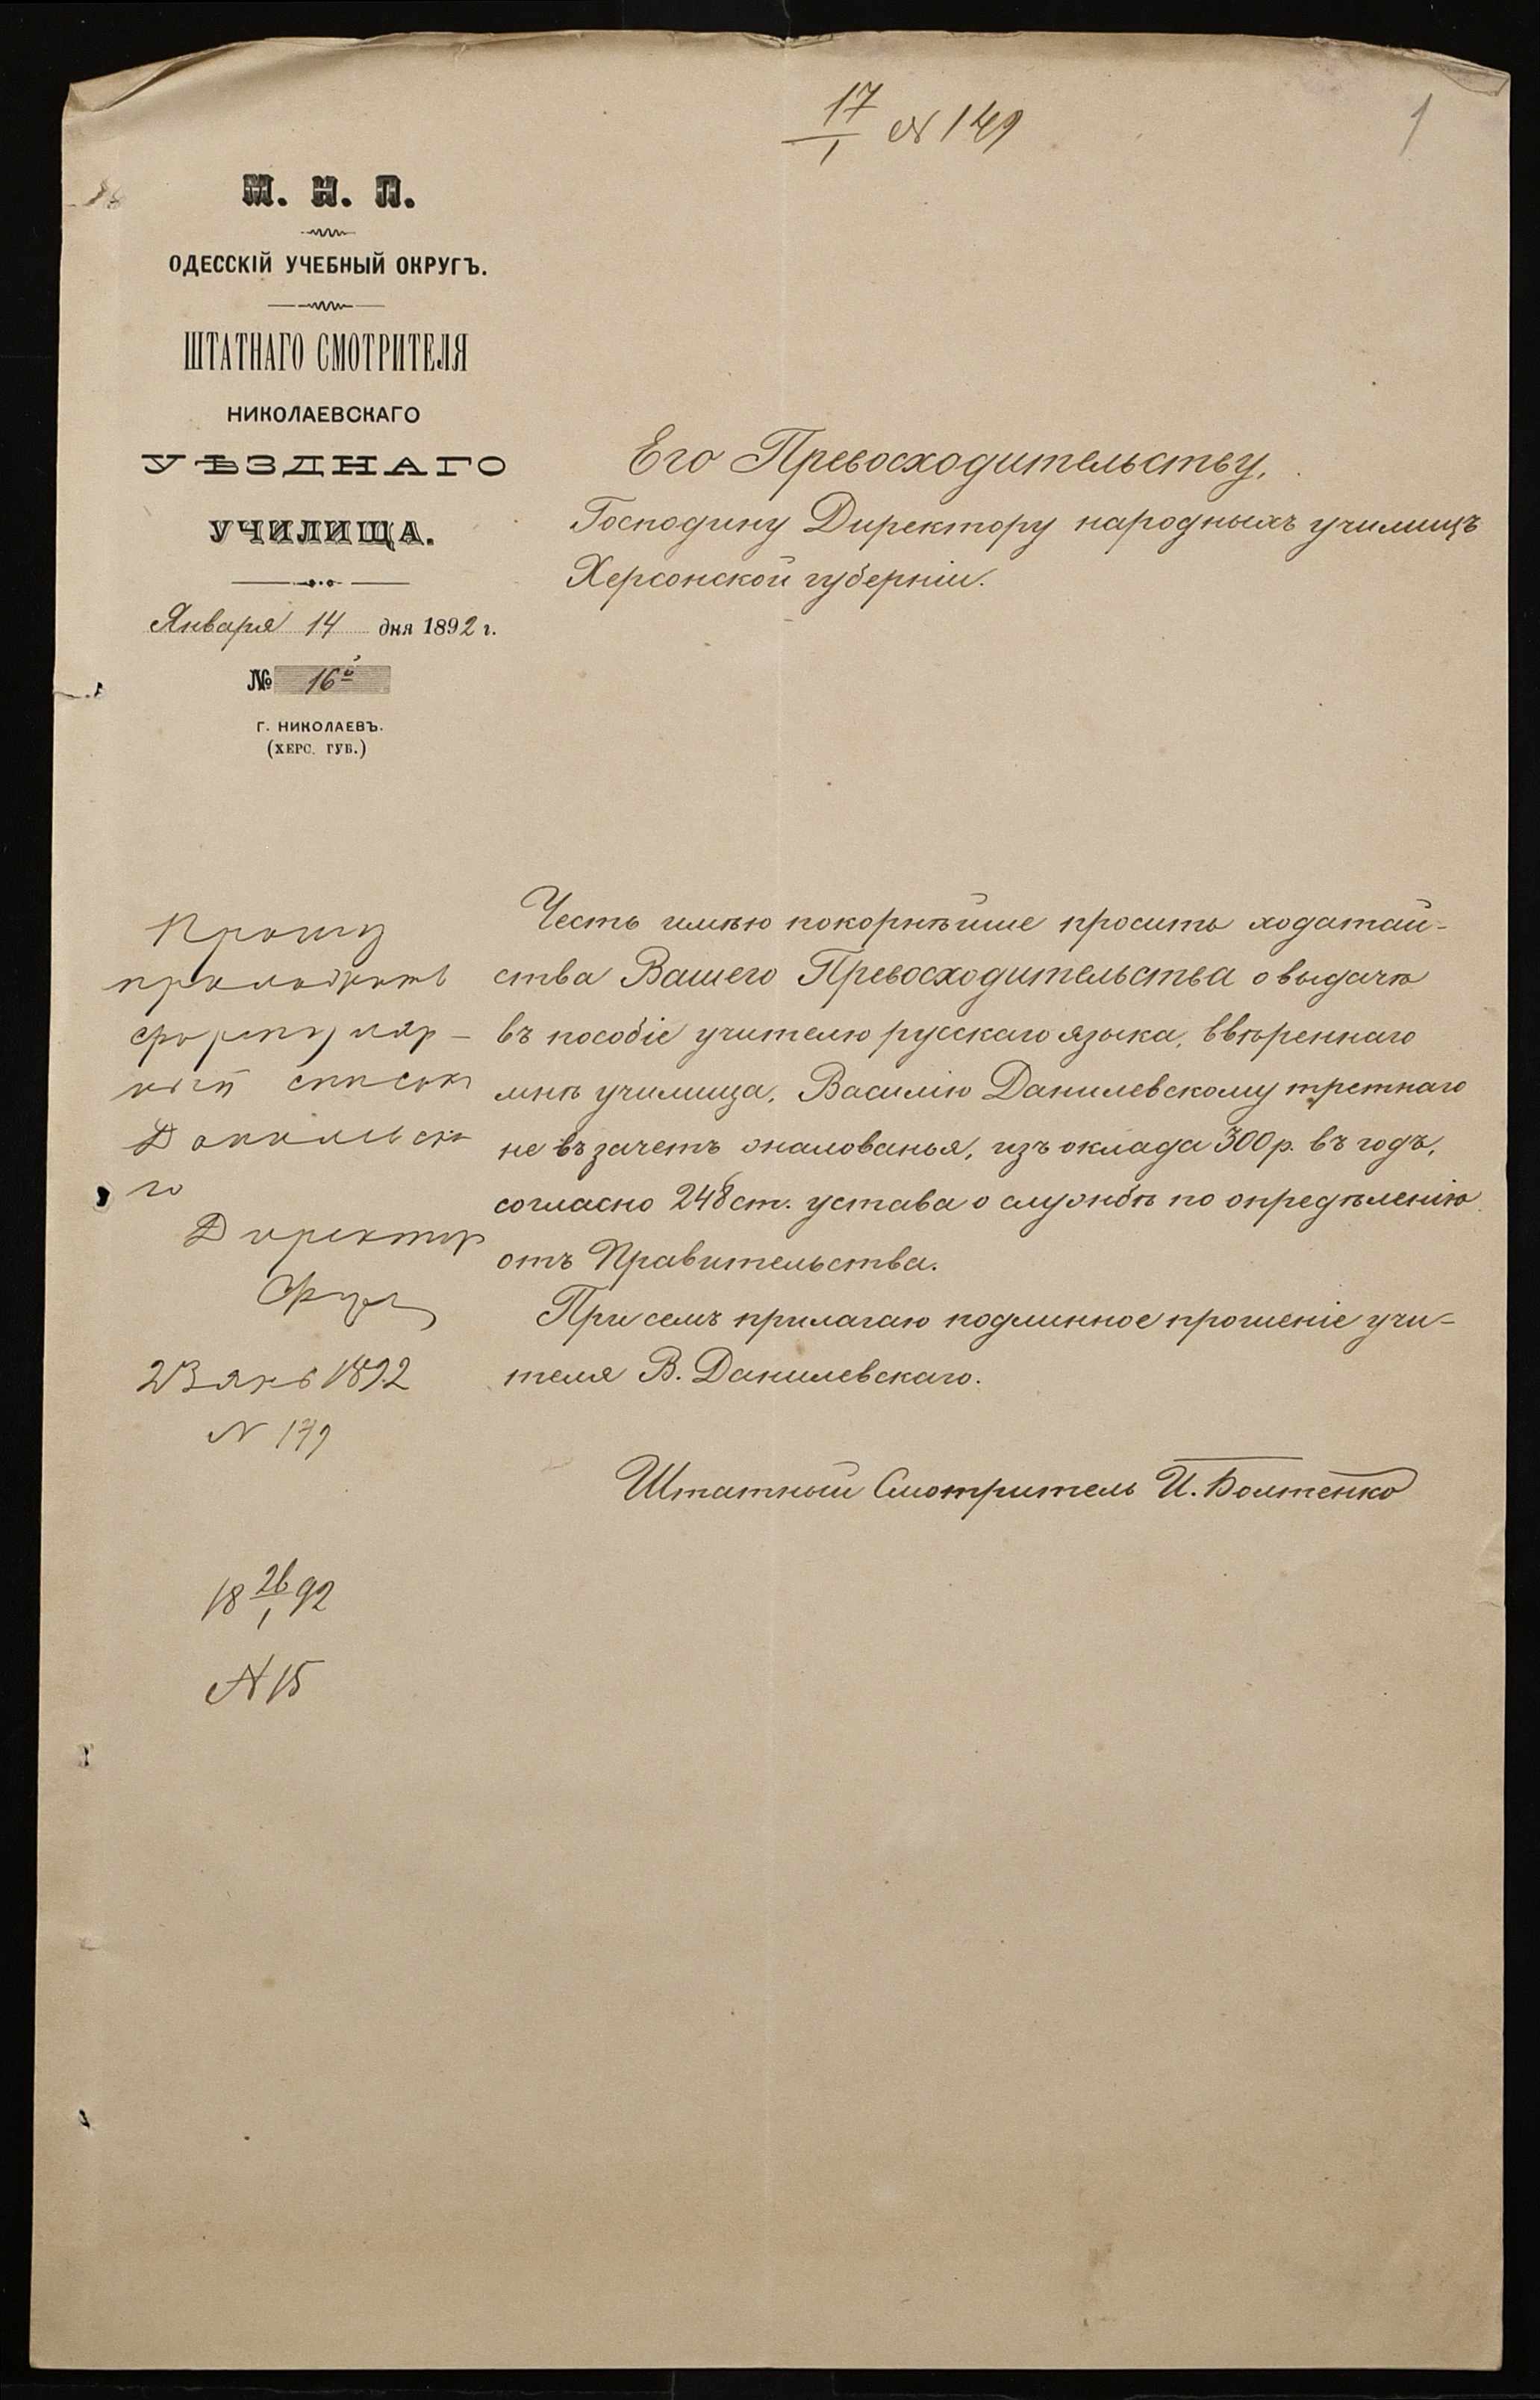 17/1 № 149
1
М. Н. П.
ОДЕССКІЙ УЧЕБНЫЙ ОКРУГЪ.
ШТАТНАГО СМОТРИТЕЛЯ
НИКОЛАЕВСКАГО
УѢЗДНАГО
УЧИЛИЩА.
Января 14 дня 1892 г.
№ 16
Г. НИКОЛАЕВЪ.
(ХЕРС. ГУБ.)
Его Превосходительству,
Господину Директору народныхъ училищъ
Херсонской губерніи.
Честь имѣю покорнѣйше просить ходатай-
ства Вашего Превосходительства о выдачѣ
въ пособіе учителю русскаго языка, ввѣреннаго
мнѣ училища, Василію Данилевскому третнаго
не въ зачетъ жалованья, изъ оклада 300 р. въ годъ,
согласно 248 ст. устава о службѣ по опредѣленію
отъ Правительства.
При семъ прилагаю подлинное прошеніе учи-
теля В. Данилевскаго.
Штатный Смотритель И. Болтенко
Прошу
приложить
формуляр-
ный список
Данилевска
го
Директор
23 янв 1892
№ 179
18 26/1 92
№ 15